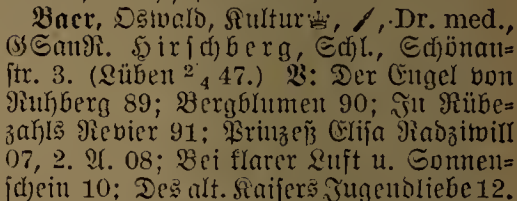 Baer, Oswald, Kultur♛, /, Dr. med.,
GSanR. Hirschberg, Schl., Schönau=
str. 3. (Lüben ²⁄₄ 47.) V: Der Engel von
Ruhberg 89; Bergblumen 90; In Rübe=
zahls Revier 91; Prinzeß Elisa Radziwill
07, 2. A. 08; Bei klarer Luft u. Sonnen=
schein 10; Des alt. Kaisers Jugendliebe 12.